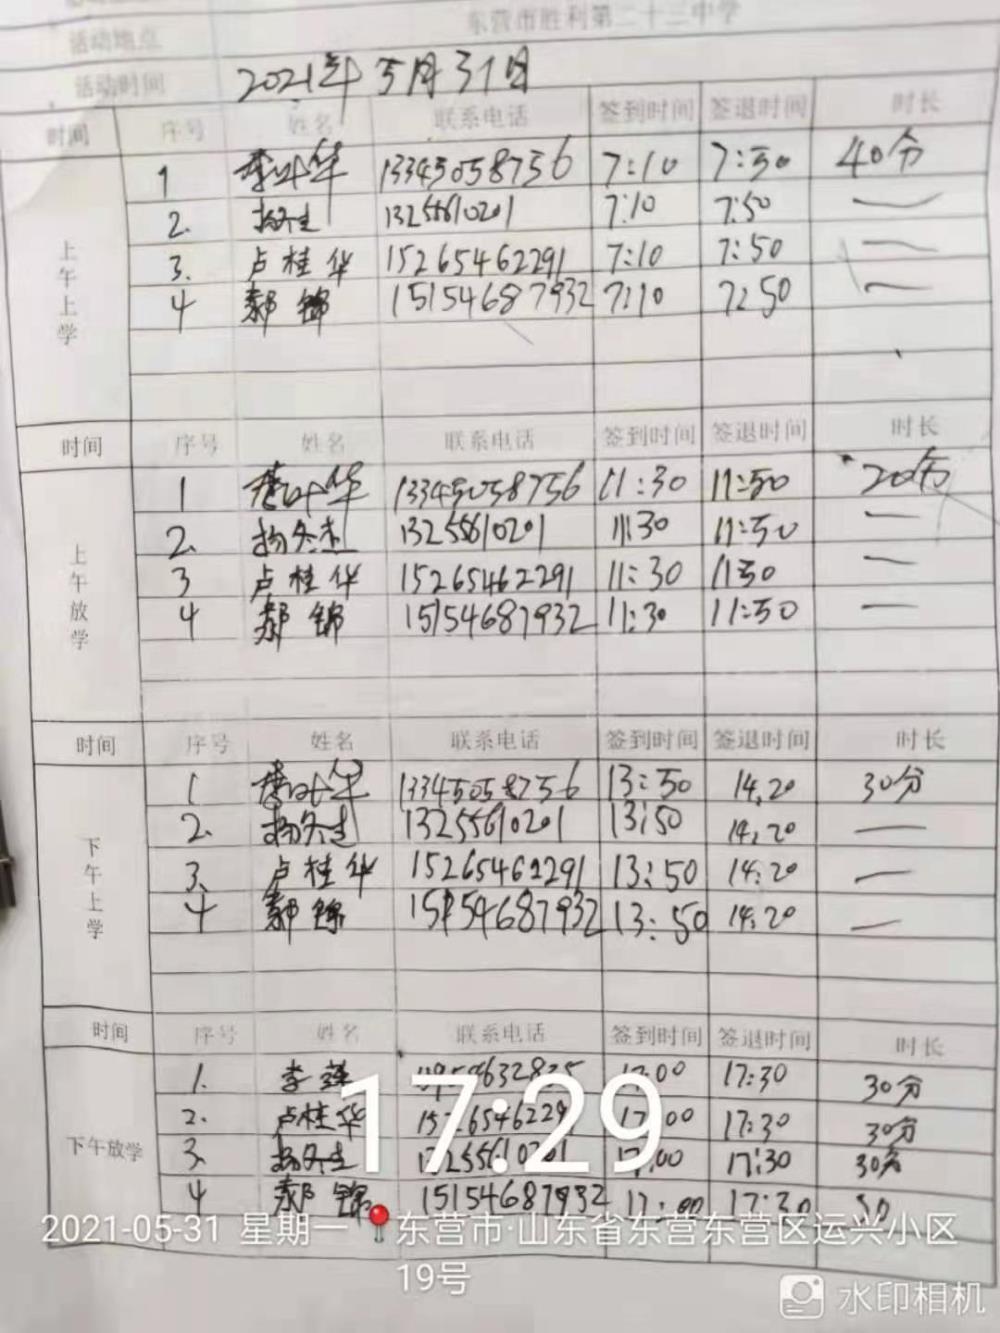 活动地点 东营市胜利第二十二中学
活动时间 2021年5月31日
时间 序号 姓名 联系电话 签到时间 签退时间 时长
上午上学
1 华 13345058756 7:10 7:50 40分
2. 13255610201 7:10 7:50 —
3. 卢桂华 15265462291 7:10 7:50 —
4 郝锦 15154687932 7:10 7:50 —
时间 序号 姓名 联系电话 签到时间 签退时间 时长
上午放学
1 华 13345058756 11:30 11:50 20分
2. 13255610201 11:30 11:50 —
3 卢桂华 15265462291 11:30 1150 —
4 郝锦 15154687932 11:30 11:50 —
时间 序号 姓名 联系电话 签到时间 签退时间 时长
下午上学
1 华 13345058756 13:50 14.20 30分
2. 13255610201 13:50 14:20 —
3. 卢桂华 15265462291 13:50 14:20 —
4 郝锦 15154687932 13:50 14:20 —
时间 序号 姓名 联系电话 签到时间 签退时间 时长
下午放学
1. 李 17:00 17:30 30分
2. 卢桂华 17:00 17:30 30分
3. 17:00 17:30 30分
4 郝锦 15154687932 17:00 17:30 30
17:29
2021-05-31 星期一 东营市·山东省东营东营区运兴小区
19号
水印相机